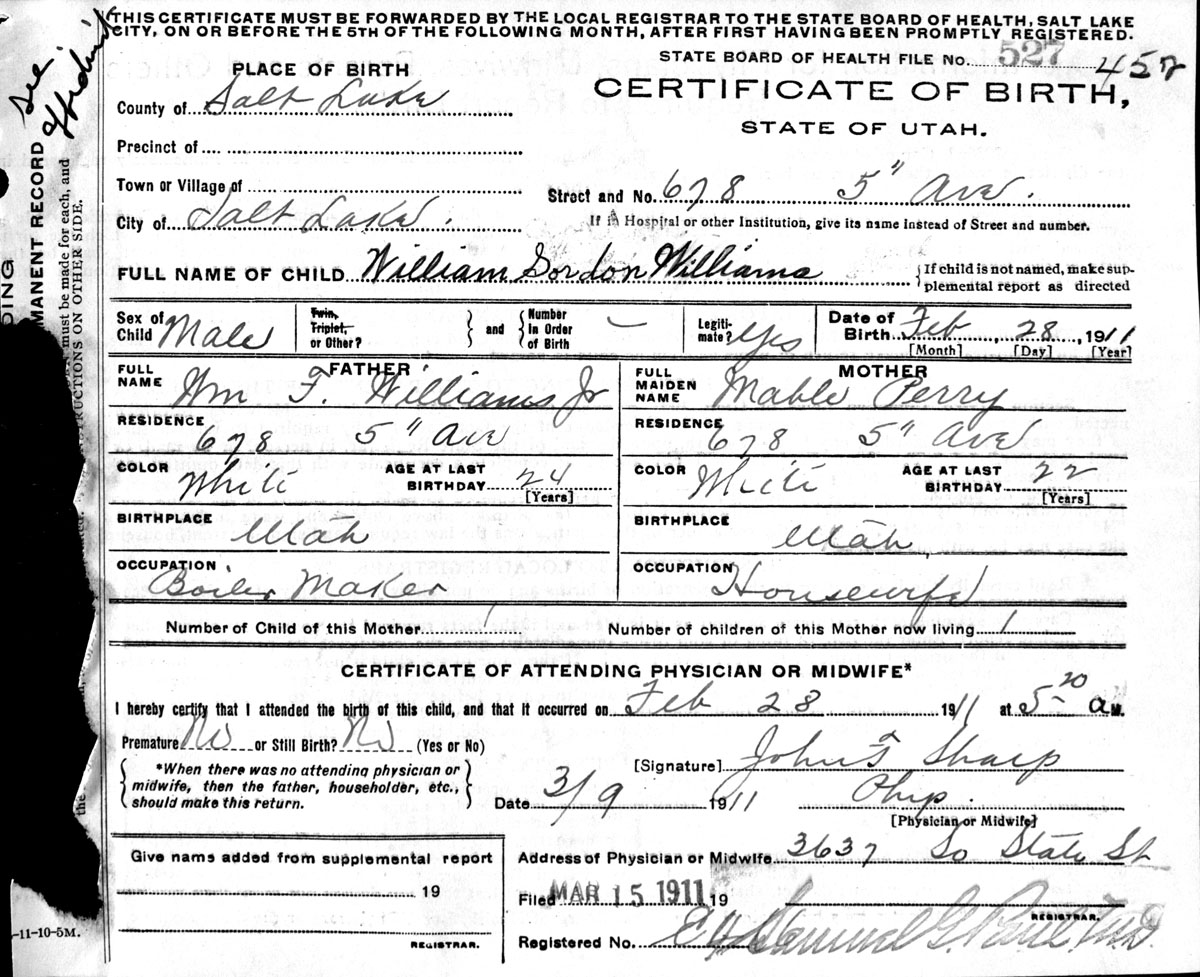 THIS CERTIFICATE MUST BE FORWARDED BY THE LOCAL REGISTRAR TO THE STATE BOARD OF HEALTH, SALT LAKE
CITY, ON OR BEFORE THE 5TH OF THE FOLLOWING MONTH, AFTER FIRST HAVING BEEN PROMPTLY REGISTERED.
See
MANENT RECORD
must be made for each, and
RUCTIONS ON OTHER SIDE.
DING
STATE BOARD OF HEALTH FILE No. 527 452
PLACE OF BIRTH
CERTIFICATE OF BIRTH,
County of Salt Lake
STATE OF UTAH.
Precinct of
Town or Village of
Street and No. 678 5" Ave.
City of Salt Lake.
If in Hospital or other Institution, give its name instead of Street and number.
FULL NAME OF CHILD William Gordon Williams
{If child is not named, make sup-
plemental report as directed
Sex of Child Male
Twin, Triplet, or Other? } and { Number in Order of Birth —
Legiti-mate? Yes
Date of Birth Feb 28, 1911
[Month] [Day] [Year]
FATHER
FULL NAME Wm F. Williams Jr
RESIDENCE 678 5" Ave
COLOR White AGE AT LAST BIRTHDAY 24
[Years]
BIRTHPLACE Utah
OCCUPATION Boiler Maker
MOTHER
FULL MAIDEN NAME Mable Perry
RESIDENCE 678 5" Ave
COLOR White AGE AT LAST BIRTHDAY 22
[Years]
BIRTHPLACE Utah
OCCUPATION Housewife
Number of Child of this Mother 1 Number of children of this Mother now living 1
CERTIFICATE OF ATTENDING PHYSICIAN OR MIDWIFE*
I hereby certify that I attended the birth of this child, and that it occurred on Feb 28 1911 at 5 20 a M.
Premature No or Still Birth? No (Yes or No)
[Signature] John F Sharp
*When there was no attending physician or
midwife, then the father, householder, etc.,
should make this return.
Date 3/9 1911 Phys.
[Physician or Midwife]
Give name added from supplemental report
19
REGISTRAR.
Address of Physician or Midwife 3637 So State St
Filed MAR 15 1911 19
REGISTRAR.
Registered No.
-11-10-5M.